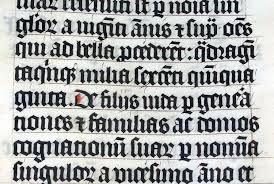 suaꝝ recensiti sūt ꝑ noīa sin
guloꝝ a uiginti ānis ⁊ supͣ om̄s
qui ad bella ꝓcederent: qͣdragī
ta quinqꝫ milia sexcenti quinqua
ginta. De filiis iuda ꝑ genera
tiones ⁊ familias ac domos
cognationum suaꝝ ꝑ nomina
singuloꝝ a uicesimo āno et